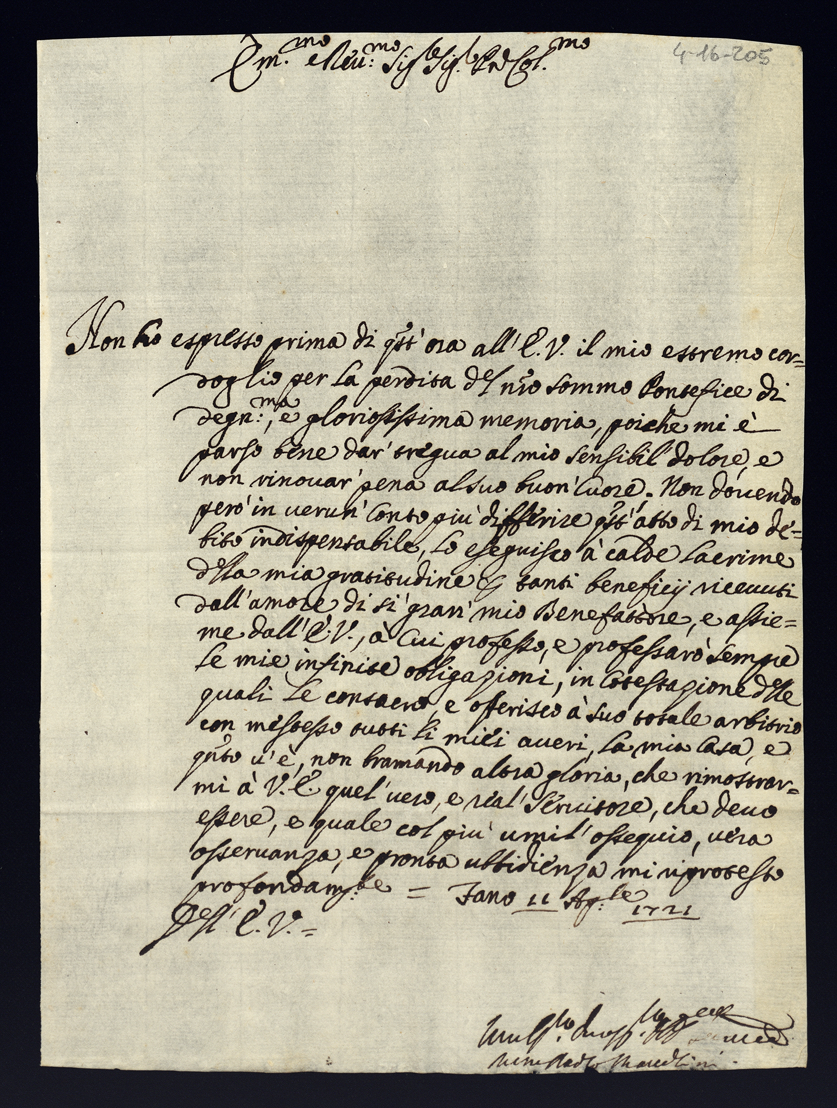 Em.mo e Reu.mo Sig.e Sig.e Pne Col.mo
4-16-205
Non ho espresso prima di qst' ora all' E. V. il mio estremo cor=
doglio per la perdita del nro sommo Pontefice di
degn.ma, e gloriosissima memoria, poiche mi è
parso bene dar' tregua al mio sensibil' dolore, e
non rinouar' pena al suo buon' Cuore. Non douendo
però in uerun' Conto più differire qst' atto di mio de=
bito indispensabile, Lo eseguisco à calde Lacrime
della mia gratitudine p tanti beneficij riceuuti
dall' amore di si gran' mio Benefattore, e assie=
me dall' E. V., à Cui professo, e professarò sempre
Le mie infinite obligazioni, in Cotestazione delle
quali Le consacro, e offerisco à suo totale arbitrio
con mestesso tutti li miei aueri, La mia Casa, e
qnto u' è, non bramando altra gloria, che rimostrar=
mi à V. E. quel' uero, e real' Seruitore, che deuo
essere, e quale col più umil' ossequio, uera
osseruanza, e pronta ubbidienza mi riprotesto
profondam.te = Fano 11 Ap.le 1721
Dell' E. V. =